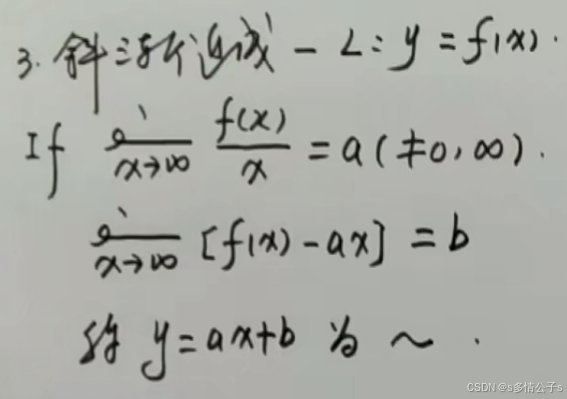 3. 斜渐近线 - L: y = f(x).
If lim x→∞ f(x)/x = a (≠0, ∞).
lim x→∞ [f(x) - ax] = b
称 y = ax+b 为 ~ .
CSDN @s多情公子s